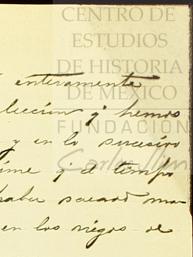 CENTRO DE
ESTUDIOS
DE HISTORIA
DE MÉXICO
FUNDACIÓN
Carlos Slim
enteramente
lección q' hemos
y en lo sucesivo
q' el tiempo
haber sacado
en los